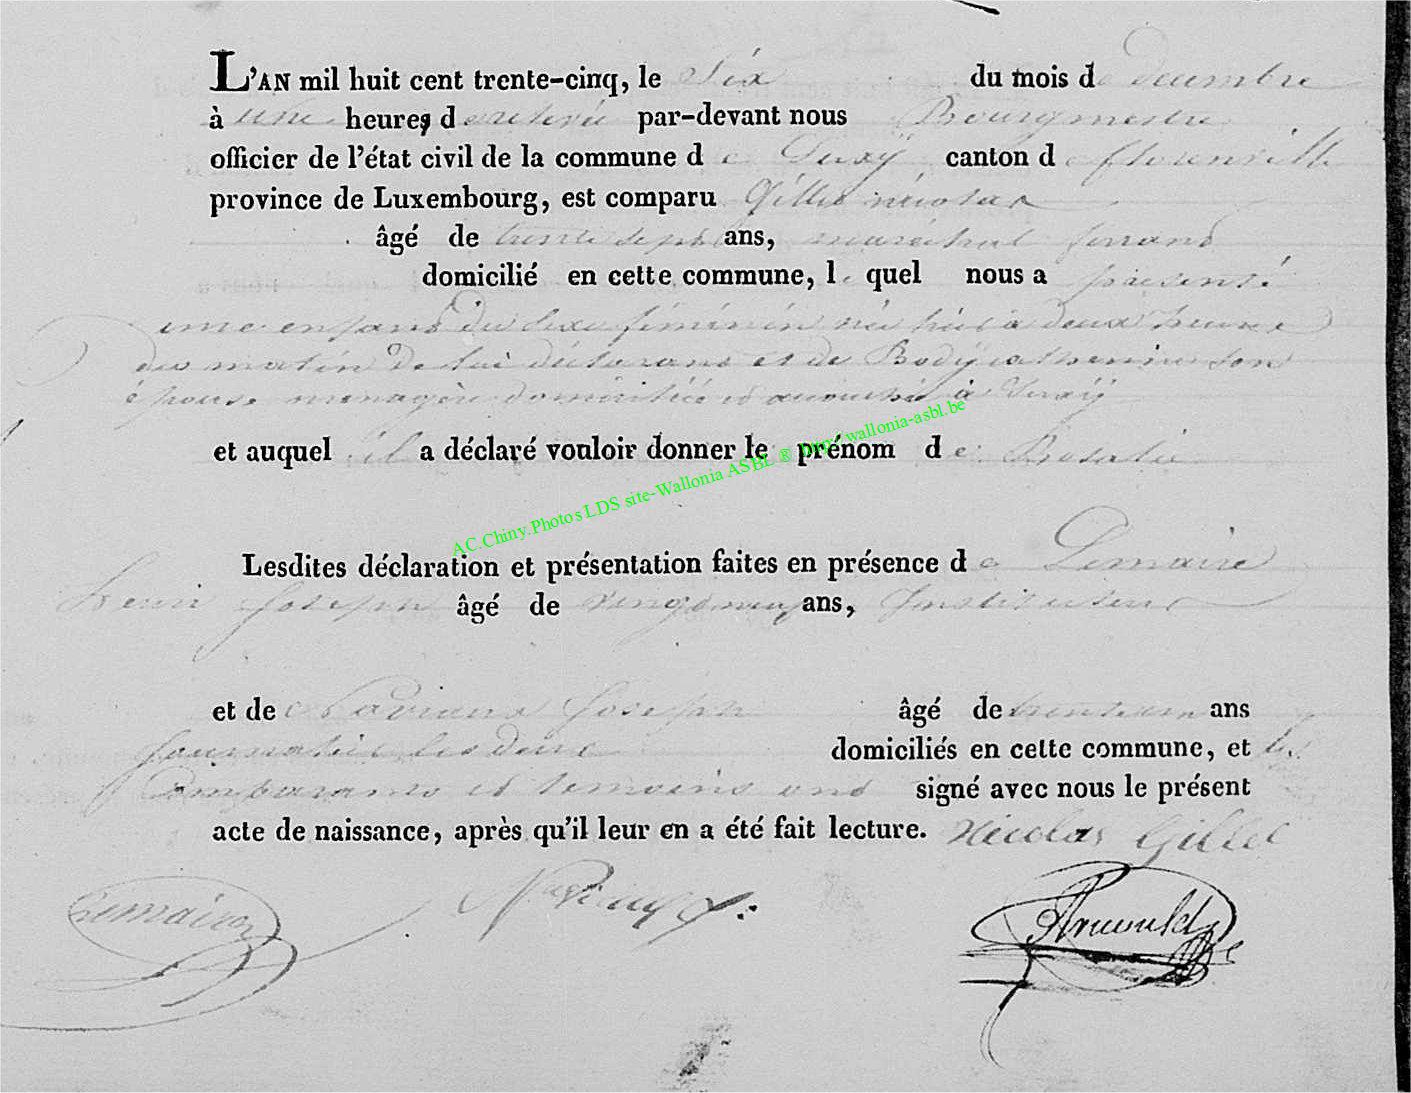 L'AN mil huit cent trente-cinq, le Six du mois de decembre
à une heure de relevée par-devant nous Bourgmestre
officier de l'état civil de la commune de Suxÿ canton de florenville
province de Luxembourg, est comparu Gillet nicolas
âgé de trente sept ans, maréchal ferrand
domicilié en cette commune, lequel nous a présenté
une enfant du sexe féminin née hier à deux heures
du matin de lui déclarant et de Bodÿ catherine son
épouse menagère domiciliée et accouchée à Suxÿ
et auquel il a déclaré vouloir donner le prénom de Rosalie
AC.Chiny.Photos LDS site-Wallonia ASBL ® http://wallonia-asbl.be
Lesdites déclaration et présentation faites en présence de Lemaire
henri Joseph âgé de vingt neuf ans, Instituteur
et de Joseph âgé de trente un ans
Journalier les deux domiciliés en cette commune, et les
Comparants et temoins ont signé avec nous le présent
acte de naissance, après qu'il leur en a été fait lecture. Nicolas Gillet